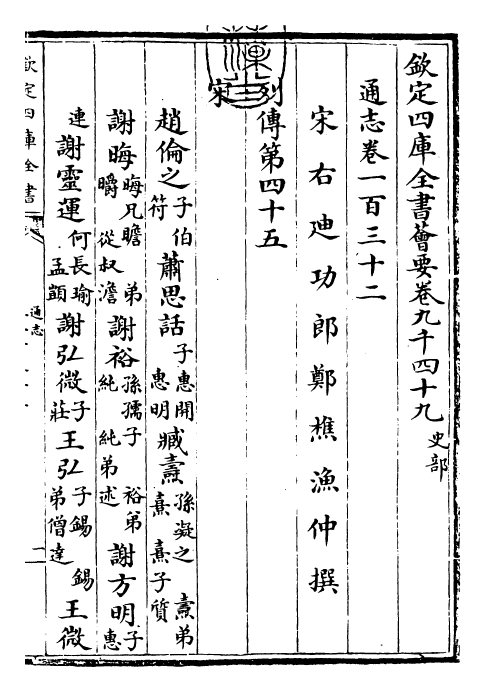 欽定四庫全書薈要卷九千四十九 史部
通志卷一百三十二
宋右迪功郎鄭樵漁仲撰
列傳第四十五
宋
趙倫之 子伯符 蕭思話 子惠開 惠明 臧燾 孫凝之 燾弟熹 熹子質
謝晦 晦兄瞻 弟㬭 從叔澹 謝裕 孫孺子 裕弟純 純弟述 謝方明 子惠
連 謝靈運 何長瑜 孟顗 謝弘微 子莊 王弘 子錫 錫弟僧達 王微
欽定四庫全書
通志